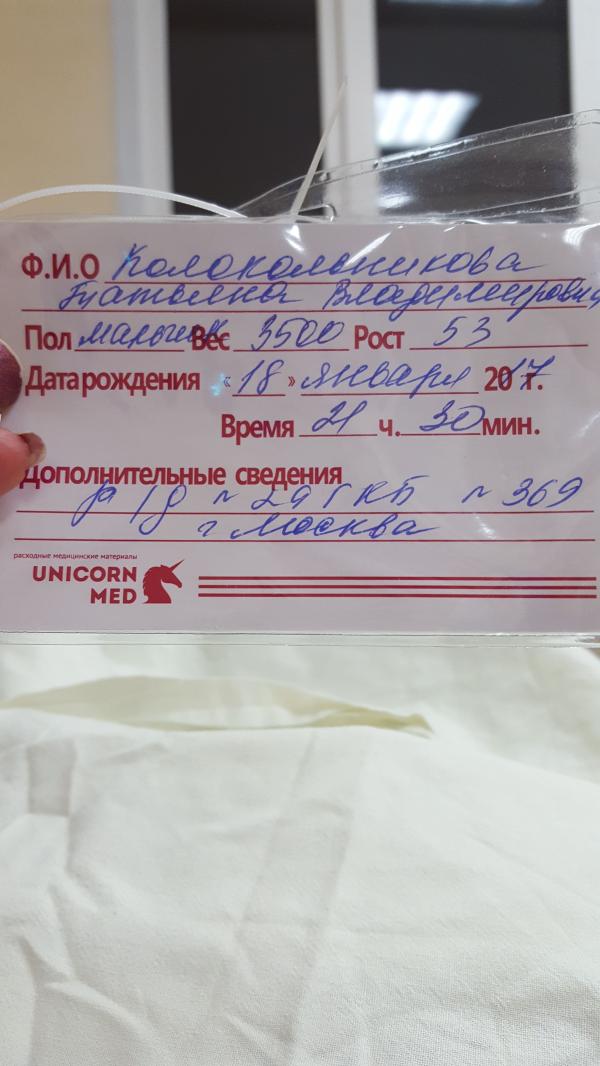 Ф.И.О Колокольникова
Татьяна Владимировна
Пол мальчик Вес 3500 Рост 53
Дата рождения «18» января 2017г.
Время 21 ч. 30 мин.
Дополнительные сведения
р/д ~ 29 ГКБ ~ 369
г Москва
расходные медицинские материалы
UNICORN
MED